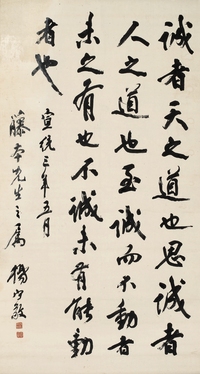 誠者天之道也思誠者
人之道也至誠而不動者
未之有也不誠未有能動
者也
宣統三年五月
藤本先生之属
楊守敬